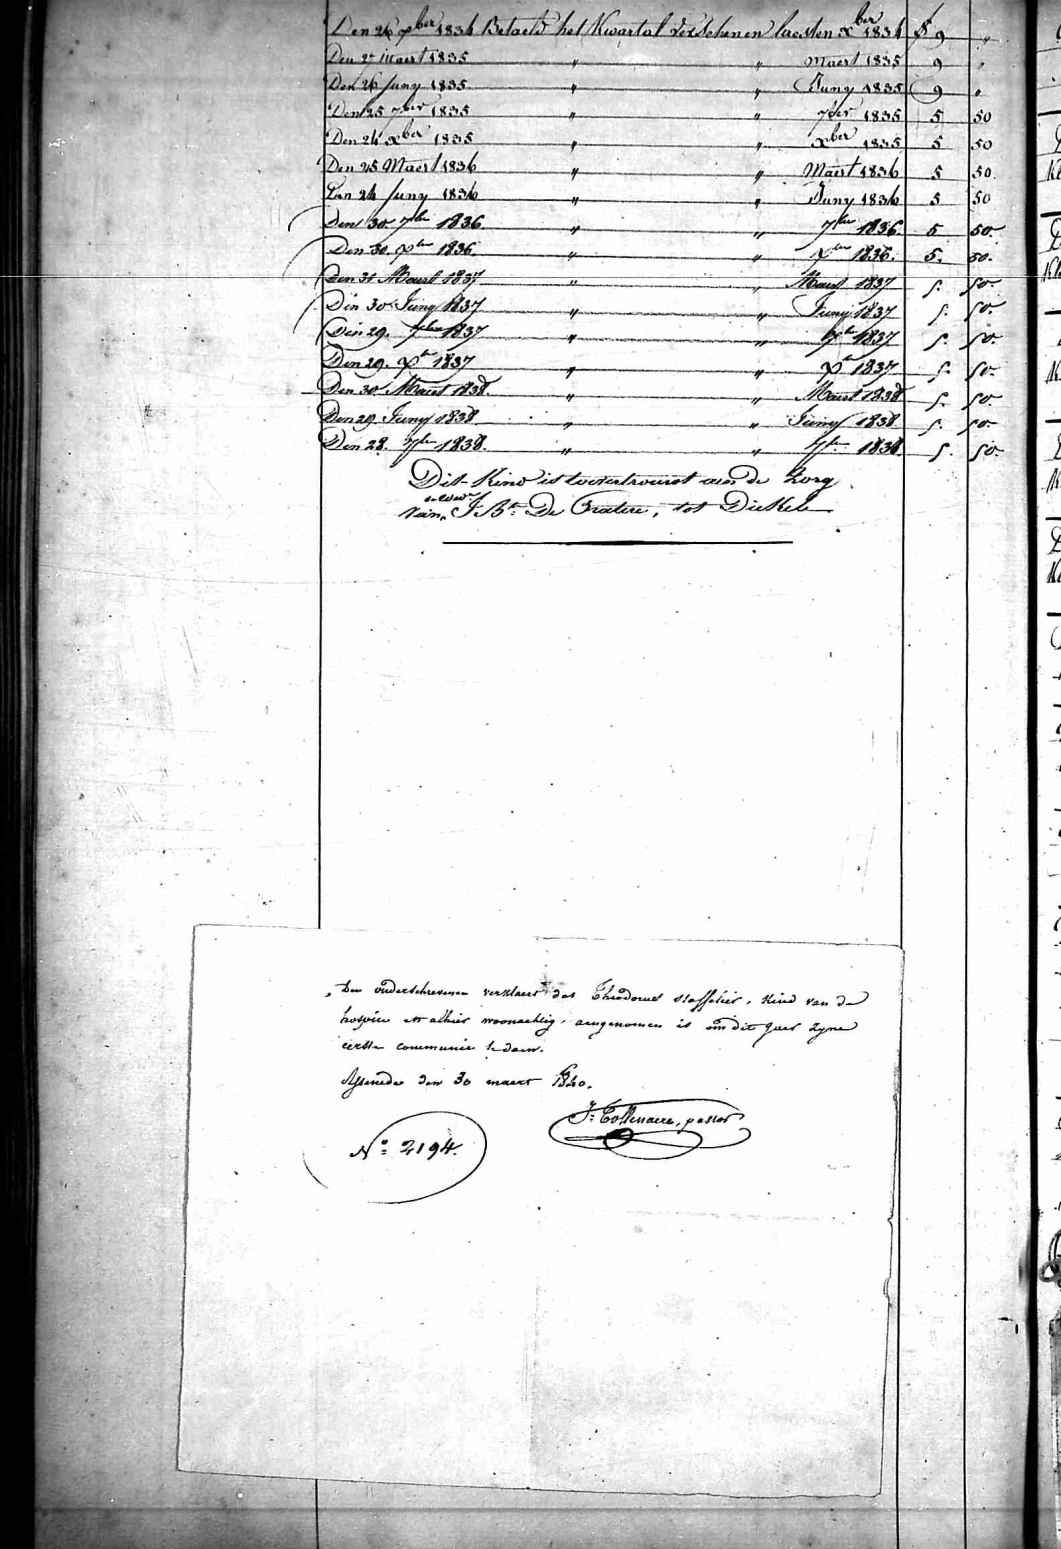 Den 26 xber 1834 Betaeld het Kwartal verschenen laesten xber 1834 f 9 "
Den 27 Maert 1835 " " Maert 1835 9 "
Den 26 Juny 1835 " " Juny 1835 9 "
Den 25 7ber 1835 " " 7ber 1835 5 50
Den 24 xber 1835 " " xber 1835 5 50
Den 25 Maert 1836 " " Maert 1836 5 50
Den 24 Juny 1836 " " Juny 1836 5 50
Den 30. 7ber 1836 " " 7ber 1836. 5 50.
Den 30. xber 1836. " " xber 1836. 5. 50.
Den 31 Maert 1837 " " Maert 1837 5. 50.
Den 30 Juny 1837 " " Juny 1837 5. 50.
Den 29. 7ber 1837 " " 7ber 1837 5. 50.
Den 29. xber 1837 " " xber 1837 5. 50.
Den 30 Maert 1838. " " Maert 1838 5. 50.
Den 29. Juny 1838. " " Juny 1838 5. 50.
Den 28. 7ber 1838. " " 7ber 1838. 5. 50.
Dit Kind is toevertrouwt aen de zorg
van J. Bte De tot Dickele
Den onderschrevenen verklaert dat Theodorus Stoffelier, Kind van de
hospice en alhier woonachtig, aengenomen is om dit jaer zyne
eerste communie te doen.
Assenede den 30 maert 1840.
J: Collenaere, pastor
No: 2194.